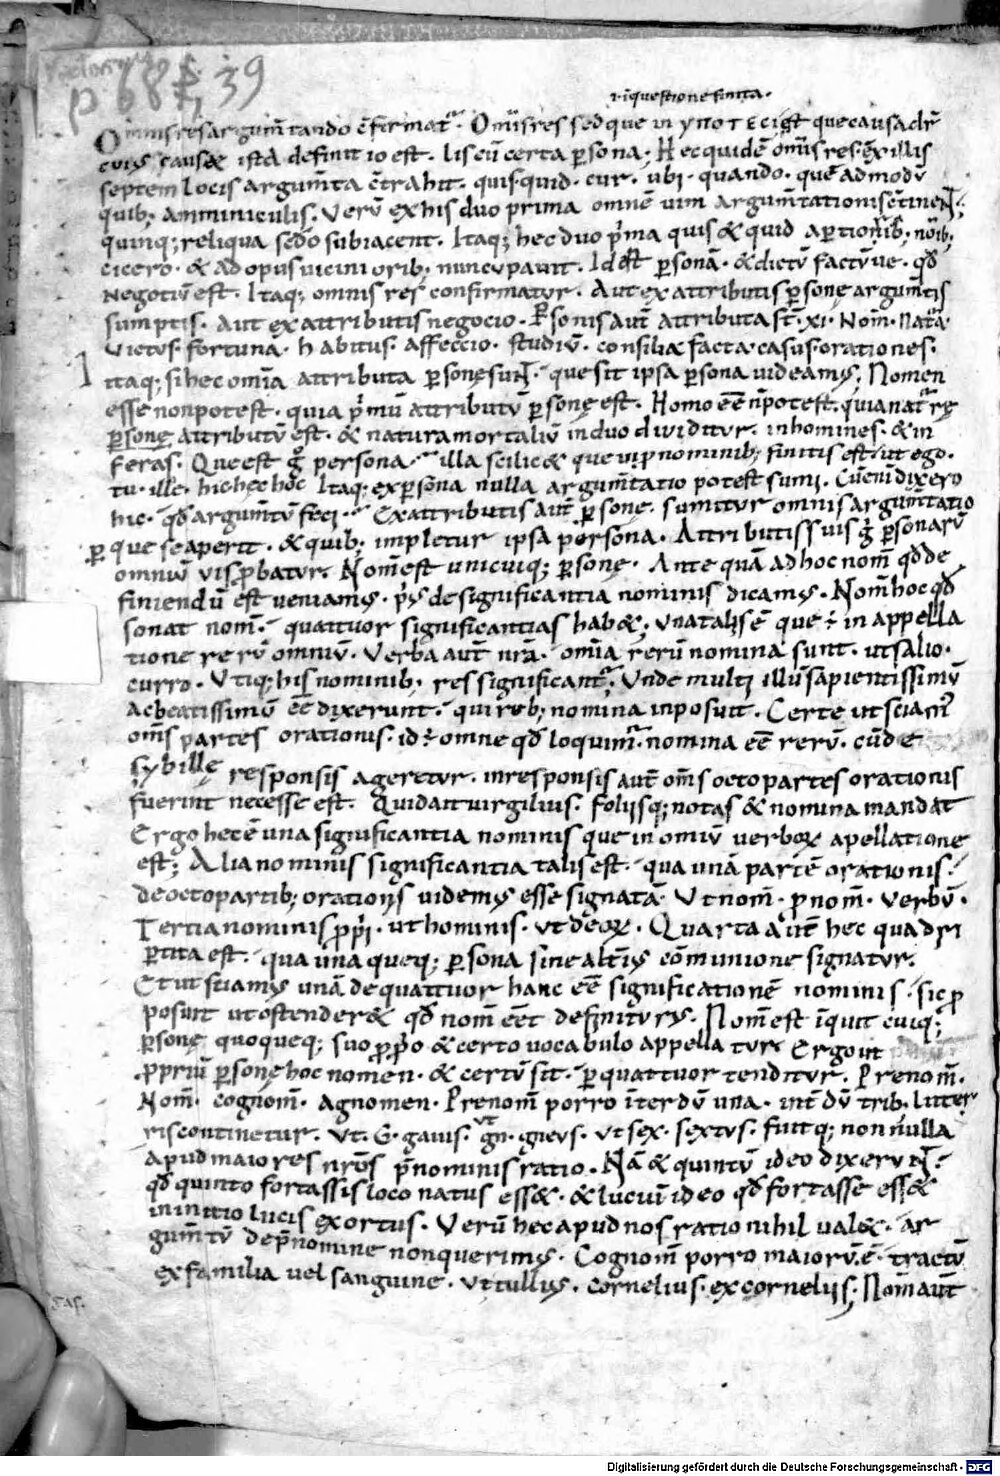 p 68 39
.i. ĩquestione finita.
Omnis res argum̄tando c̄firmat᷑. Om̄is res sed que in ypoteci est que causa dr̄
cuiꝰ causae ista definitio est. Lis cū certa ꝑsona; Hec quidē om̄is res. ēx illis
septem locis argum̄ta c̄trahit. quis. quid. cur. ubi. quando. quē admodū
quib; amminiculis. Verū ex his duo prima omnē uim argum̄tationis c̄tineɴ̄t;
quinq; reliqua sed̄o subiacent. Itaq; hec duo p̄ma quis & quid aꝑtiorib; nōib;
cicero. & ad opus uiciniorib; nuncupauit. Id est ꝑsonā. & dictū factūue. qđ
negotiū est. Itaq; omnis res confirmatur. Aut ex attributis ꝑsonę argum̄tis
sumptis. Aut ex attributis negocio. Ꝑsonis aut̄ attributa st̄. xi. Nom̄. Nat᷑a.
Victus. fortunā. habitus. affeccio. studiū. consilia facta. casus. orationes.
Itaq; si hec om̄ia attributa ꝑsonę suɴ̄t. que sit ipsa ꝑsona uideamꝰ. Nomen
esse non potest. quia p̄mū attributū ꝑsonę est. Homo ēē n̄ potest. quia nat᷑rę
ꝑsonę attributū est. & natura mortaliū in duo diuiditur. in homines. & in
feras. Que est g̊ persona. illa scilic& que uı pnominib; finitis est ut ego.
tu. ille. hic. hęc hoc Itaq; ex ꝑsona nulla argum̄tatio potest sumi. Cū eni dixero
hic. qđ argum̄tū feci. Ex attributis aut̄ ꝑsonę. sumitur omnis argum̄tatio
ꝑ que se aperit. & quib; impletur ipsa persona. Attributis suis g̊ ꝑsonarū
omniū uis ꝓbatur. Nom̄ est unicuiq; ꝑsonę. Ante quā ad hoc nom̄ qđ de
finiendū est ueniamꝰ. p̄ꝰ de significantia nominis dicamꝰ. Nom̄ hoc qđ
sonat nom̄. quattuor significantias hab&. Vna talis ē que ÷ in appella
tione rerū omniū. Verba aut̄ nr̄a. om̄ia rerū nomina sunt. ut salio.
curro. Vtiq; his nominib; res significant᷑. Vnde multi illū sapientissimū
ac beatissimū ēē dixerunt. qui reb; nomina inposuit. Certe ut sciamꝰ
om̄s partes orationis. id ÷ omne qđ loquim᷑. nomina ēē rerū. cū de
sybille responsis ageretur. in responsis aut̄ om̄s octo partes orationis
fuerint necesse est. Quid ait uirgilius. foliisq; notas & nomina mandat
Ergo hec ē una significantia nominis que in omniū verboꝝ apellatione
est; Alia nominis significantia talis est. qua unā partē orationis.
de octo partib; orationis uidemꝰ esse signatā. Vt nom̄. pnom̄. verbū.
Tertia nominis ꝓpri. ut hominis. ut deoꝝ. Quarta aut̄ hec quadri
ꝑtita est. qua una queq; ꝑsona sine altiꝰ cōmunione signatur.
Et ut sciamꝰ unā de quattuor hanc ēē significationē nominis. sic ꝓ
posuit ut ostender& qđ nom̄ ēēt definiturꝰ. Nom̄ est īquit cuiq;
ꝑsonę quoqueq; suo ꝓpo & certo uocabulo appellatur Ergo ut
ꝓpriū ꝑsonę hoc nomen. & certū sit. ꝑ quattuor tenditur. Prenom̄.
Nom̄. cognom̄. agnomen. Prenom̄ porro īterdū una. int̄dū trib; litter
ris continetur. Vt. G. gaius. ut gn. gneus. Vt sex. sextus. fuitq; non nulla
apud maiores nr̄ōs p̄nominis ratio. Nā & quintū ideo dixeruɴ̄t
qđ quinto fortassis loco natus ess&. & luciū ideo qđ fortasse ess&
in initio lucis exortus. Verū hec apud nos ratio nihil ual&. ar
gum̄tū de p̄nomine non querimꝰ. Cognom̄ porro maiorū. ē. tractū
ex familia uel sanguine. ut tulliꝰ. cornelius. ex corneliis; Nom̄ aut̄
Digitalisierung gefördert durch die Deutsche Forschungsgemeinschaft - DFG